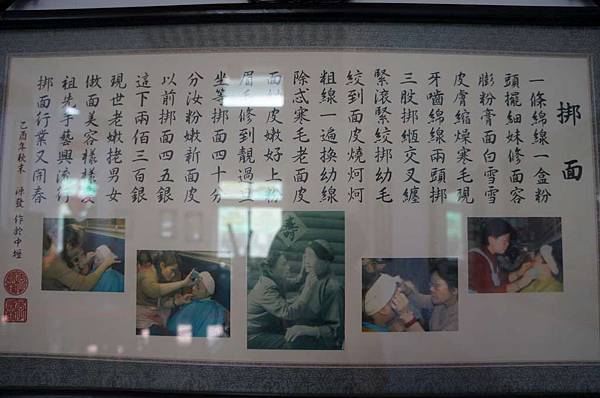 挷面
一條綿線一盒粉
頭擺細妹修面容
膨粉膏面白雪雪
皮膚縮燥寒毛現
牙嚙綿線兩頭挷
三股挷緪交叉纏
緊滾緊絞挷幼毛
絞到面皮燒炣炣
粗線一遍換幼線
除忒寒毛老面皮
面皮嫩好上粉
眉毛修到靚過
坐等挷面四十分
分汝粉嫩新面皮
以前挷面四五銀
這下兩佰三百銀
現世老嫩撈男女
做面美容樣樣
祖先手藝興流行
挷面行業又開春
乙酉年秋末 發 作於中壢
壽